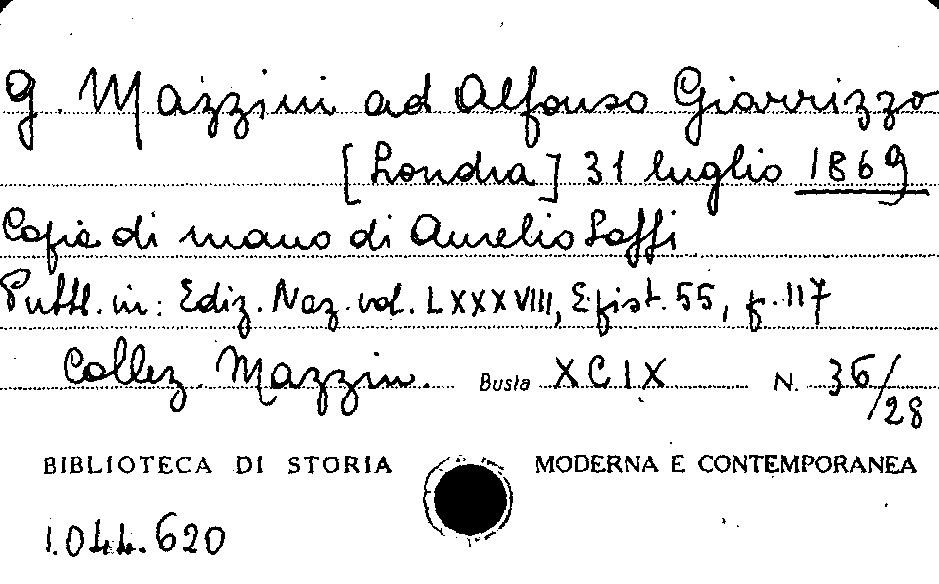 G. Mazzini ad Alfonso Giarrizzo
[Londra] 31 luglio 1869
Copia di mano di Aurelio Saffi
Pubbl. in: Ediz. Naz. vol. LXXXVIII, Epist. 55, p. 117
Collez. Mazzin. Busta XCIX N. 36/28
BIBLIOTECA DI STORIA MODERNA E CONTEMPORANEA
1.044.620